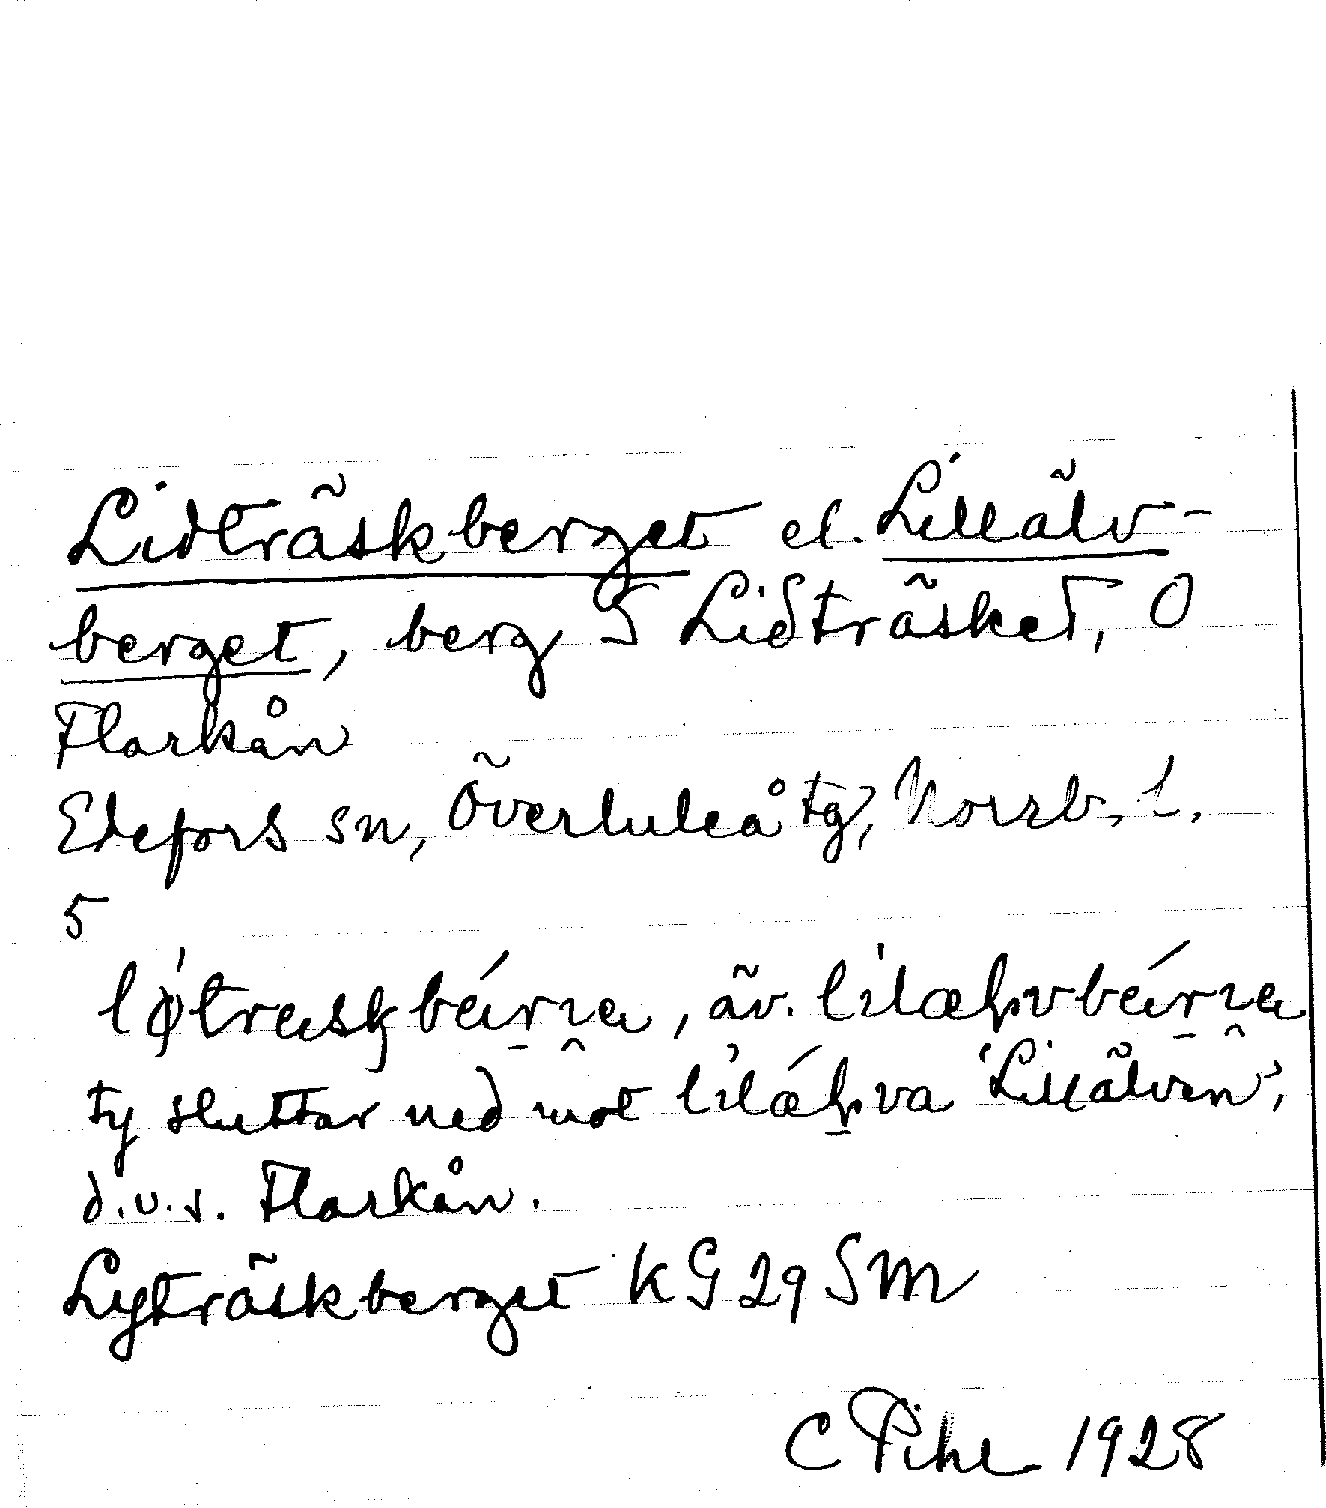 Lidträskberget el. Lillälv-
berget, berg S Lidträsket, O
Flarkån
Edefors sn, Överluleå tg, Norrb. l.
5
ty sluttar ned mot 'Lillälven',
d.v.s. Flarkån.
Lyträskberget KG 29 SM
C Pihl 1928